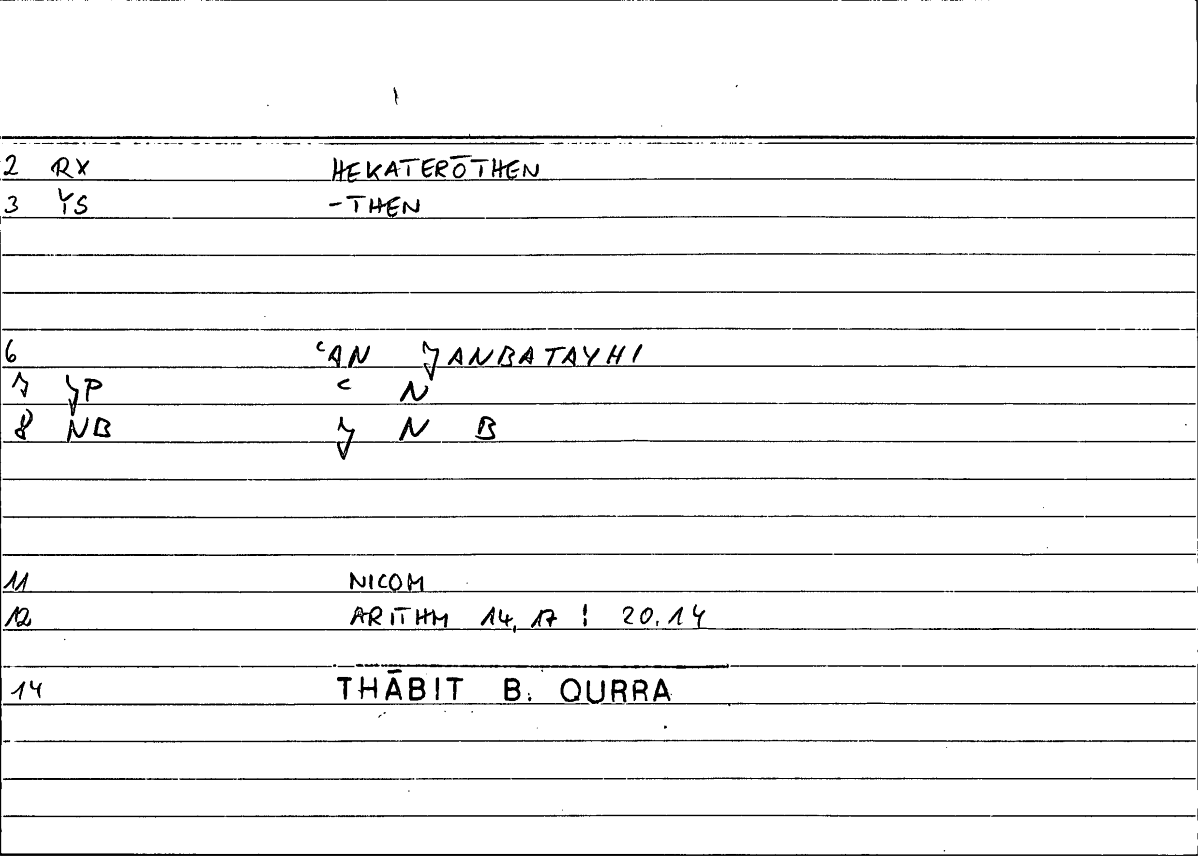 2 RX HEKATERŌTHEN
3 YS -THEN
6 ʿAN ǦANBATAYHI
7 ǦP ʿ N
8 NB Ǧ N B
11 NICOM
12 ARITHM 14,17 ! 20.14
14 THĀBIT B. QURRA